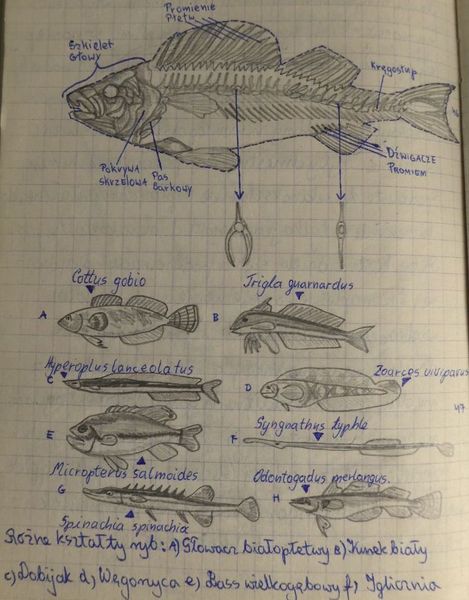 Promienie
Płetw
Szkielet
Głowy
Kręgosłup
Pokrywa
skrzelowa
Pas
barkowy
Dźwigacze
Promieni
Cottus gobio
Trigla guarnardus
A
B
Hyperoplus lanceolatus
Zoarces viviparus
C
D
47
E
F
Syngnathus typhle
Micropterus salmoides
Odontogadus merlangus.
G
H
Spinachia spinachia
Różne kształty ryb: A) Głowacz białopłetwy B) Kurek biały
c) Dobijak d) Węgorzyca e) Bass wielkogębowy f) Iglicznia